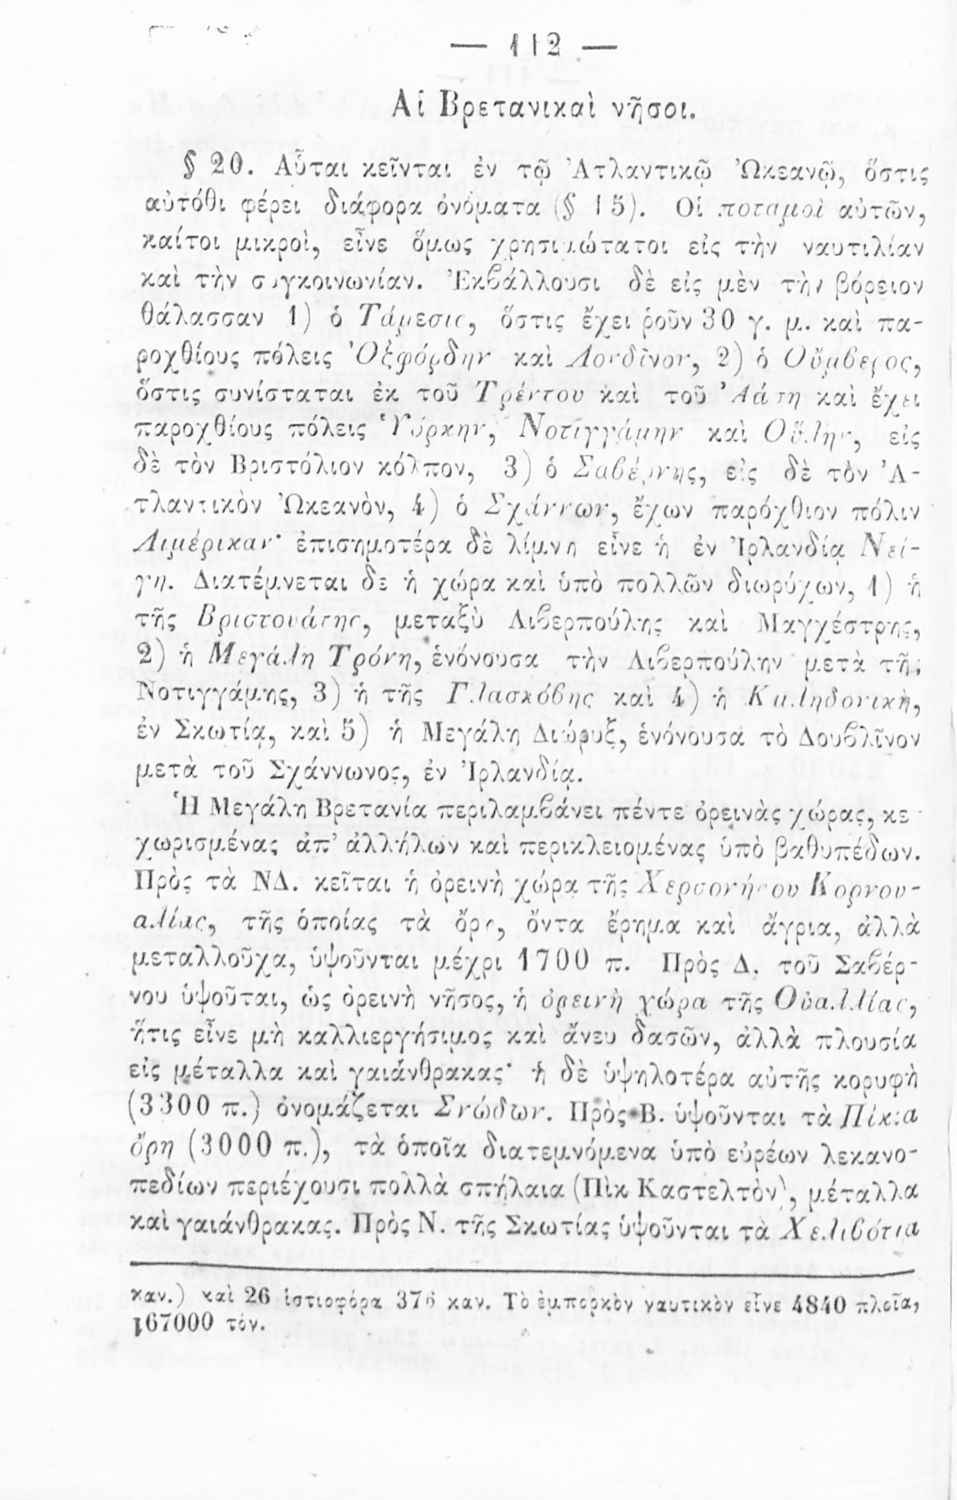 — 112 —
Αἱ Βρετανικαὶ νῆσοι.
§ 20. Αὗται κεῖνται ἐν τῷ Ἀτλαντικῷ Ὠκεανῷ, ὅστις
αὐτόθι φέρει διάφορα ὀνόματα (§ 15). Οἱ ποταμοὶ αὐτῶν,
καίτοι μικροὶ, εἶνε ὅμως χρησιμώτατοι εἰς τὴν ναυτιλίαν
καὶ τὴν συγκοινωνίαν. Ἐκβάλλουσι δὲ εἰς μὲν τὴν βόρειον
θάλασσαν 1) ὁ Τάμεσις, ὅστις ἔχει ῥοῦν 30 γ. μ. καὶ πα-
ροχθίους πόλεις Ὀξφόρδην καὶ Λονδῖνον, 2) ὁ Οὔμβερος,
ὅστις συνίσταται ἐκ τοῦ Τρέντου καὶ τοῦ καὶ ἔχει
παροχθίους πόλεις Ὑόρκην, Νοτιγγάμην καὶ Οὔλην, εἰς
δὲ τὸν Βριστόλιον κόλπον, 3) ὁ Σαβέρνης, εἰς δὲ τὸν Ἀ-
τλαντικὸν Ὠκεανὸν, 4) ὁ Σχάννων, ἔχων παρόχθιον πόλιν
Λιμέρικαν· ἐπισημοτέρα δὲ λίμνη εἶνε ἡ ἐν Ἰρλανδίᾳ Νεί-
γη. Διατέμνεται δὲ ἡ χώρα καὶ ὑπὸ πολλῶν διωρύχων, 1) ἡ
τῆς μεταξὺ Λιβερπούλης καὶ Μαγχέστρης,
2) ἡ Μεγάλη Τρόνη, ἑνόνουσα τὴν Λιβερπούλην μετὰ τῆς
Νοτιγγάμης, 3) ἡ τῆς Γλασκόβης καὶ 4) ἡ Καληδονικὴ,
ἐν Σκωτίᾳ, καὶ 5) ἡ Μεγάλη Διώρυξ, ἑνόνουσα τὸ Δουβλῖνον
μετὰ τοῦ Σχάννωνος, ἐν Ἰρλανδίᾳ.
Ἡ Μεγάλη Βρετανία περιλαμβάνει πέντε ὀρεινὰς χώρας, κε
χωρισμένας ἀπ' ἀλλήλων καὶ περικλειομένας ὑπὸ βαθυπέδων.
Πρὸς τὰ ΝΔ. κεῖται ἡ ὀρεινὴ χώρα τῆς Χερσονήσου Κορνου-
αλίας, τῆς ὁποίας τὰ ὄρη, ὄντα ἔρημα καὶ ἄγρια, ἀλλὰ
μεταλλοῦχα, ὑψοῦνται μέχρι 1700 π. Πρὸς Δ. τοῦ Σαβέρ-
νου ὑψοῦται, ὡς ὀρεινὴ νῆσος, ἡ ὀρεινὴ χώρα τῆς Οὐαλλίας,
ἥτις εἶνε μὴ καλλιεργήσιμος καὶ ἄνευ δασῶν, ἀλλὰ πλουσία
εἰς μέταλλα καὶ γαιάνθρακας· ἡ δὲ ὑψηλοτέρα αὐτῆς κορυφὴ
(3300 π.) ὀνομάζεται Σνώδων. Πρὸς Β. ὑψοῦνται τὰ Πίκια
ὄρη (3000 π.), τὰ ὁποῖα διατεμνόμενα ὑπὸ εὐρέων λεκανο-
πεδίων περιέχουσι πολλὰ σπήλαια (Πὶκ Καστελτὸν), μέταλλα
καὶ γαιάνθρακας. Πρὸς Ν. τῆς Σκωτίας ὑψοῦνται τὰ Χελιβότια
καν.) καὶ 26 ἱστιοφόρα 376 καν. Τὸ ἐμπορκὸν ναυτικὸν εἶνε 4840 πλοῖα,
167000 τόν.